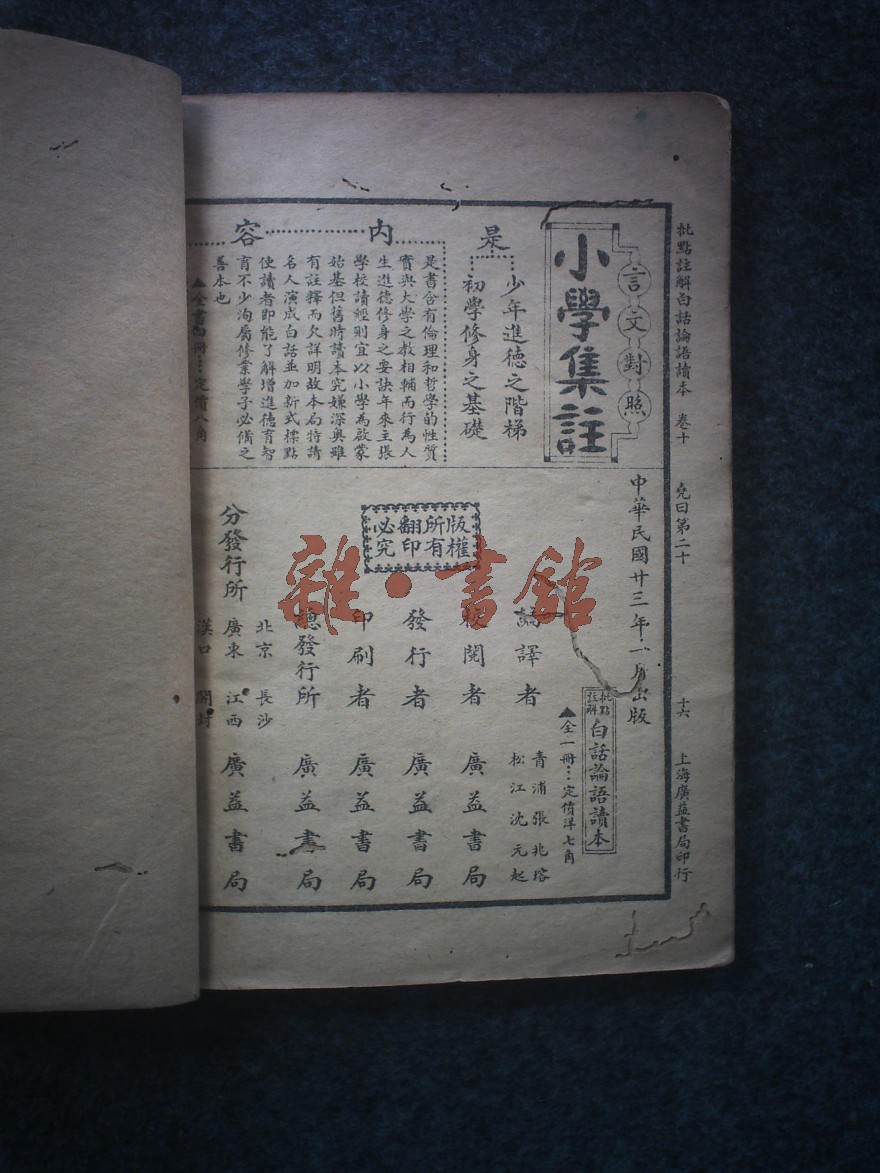 批點註解白話論語讀本 卷十 堯曰第二十 十六 上海廣益書局印行
言文對照
小學集註
是
少年進德之階梯
初學修身之基礎
內容
是書含有倫理和哲學的性質
實與大學之教相輔而行為人
生進德修身之要訣年來主張
學校讀經則宜以小學為啟蒙
始基但舊時讀本究嫌深奧雖
有註釋而欠詳明故本局特請
名人演成白話並加新式標點
使讀者即能了解增進德育智
育不少洵屬修業學子必備之
善本也
▲全書 冊…定價八角
中華民國廿三年 月出版
批點註解 白話論語讀本
▲全一冊…定價洋七角
版權所有
翻印必究
譯者 青浦張兆瑢 松江沈元起
校閱者 廣益書局
發行者 廣益書局
印刷者 廣益書局
總發行所 廣益書局
分發行所 北京 長沙 廣東 江西 漢口 開封 廣益書局
雜·書館